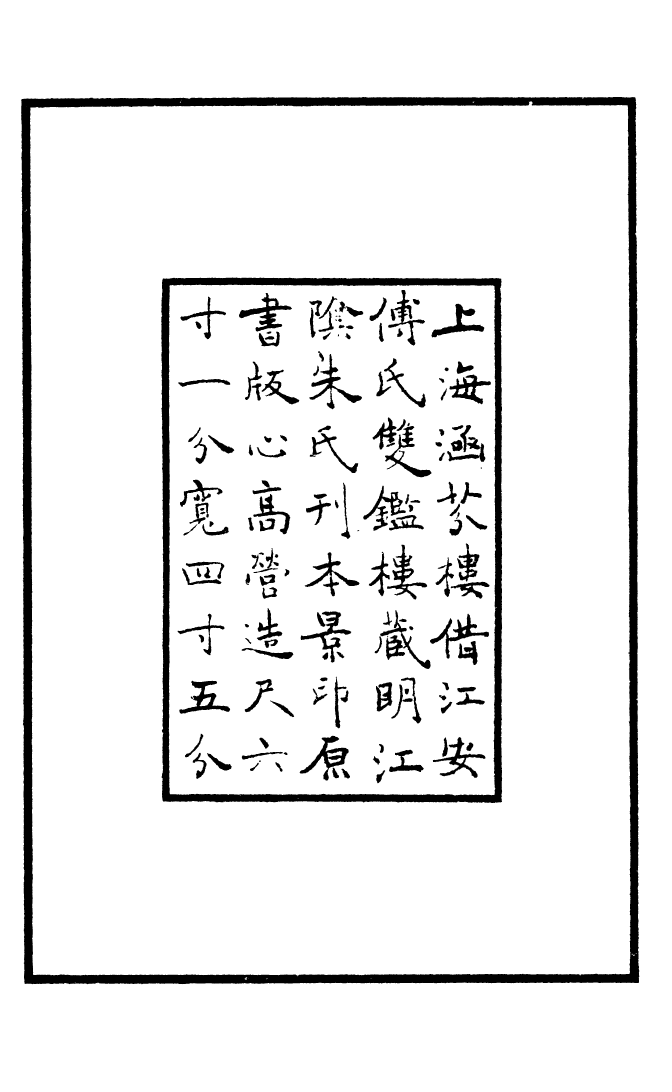 上海涵芬樓借江安
傅氏雙鑑樓藏明江
陰朱氏刊本景印原
書版心高營造尺六
寸一分寬四寸五分